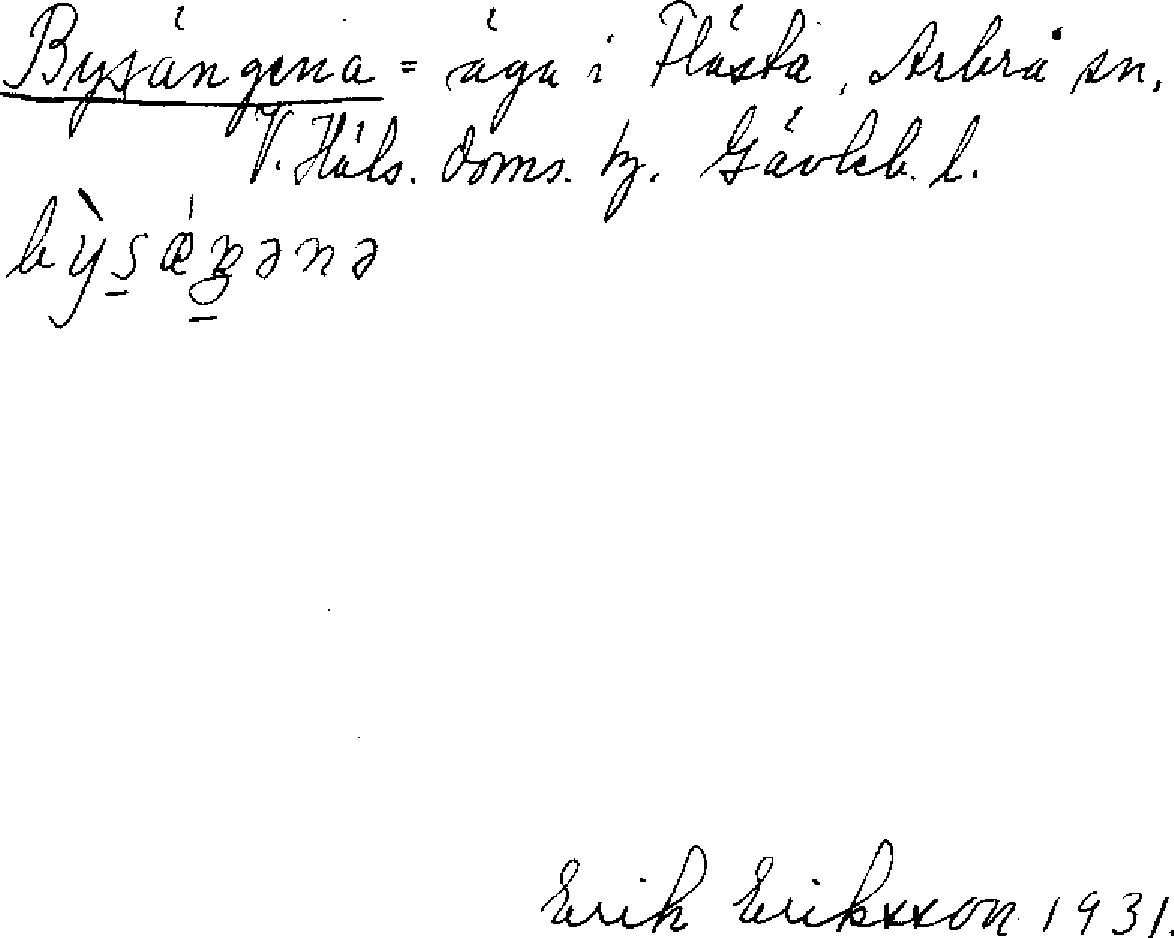 Bysängena = ägu i Flästa, Arbrå sn.
V. Häls. doms. tg. Gävleb. l.
bỳsǽŋənə
Erik Eriksson 1931.